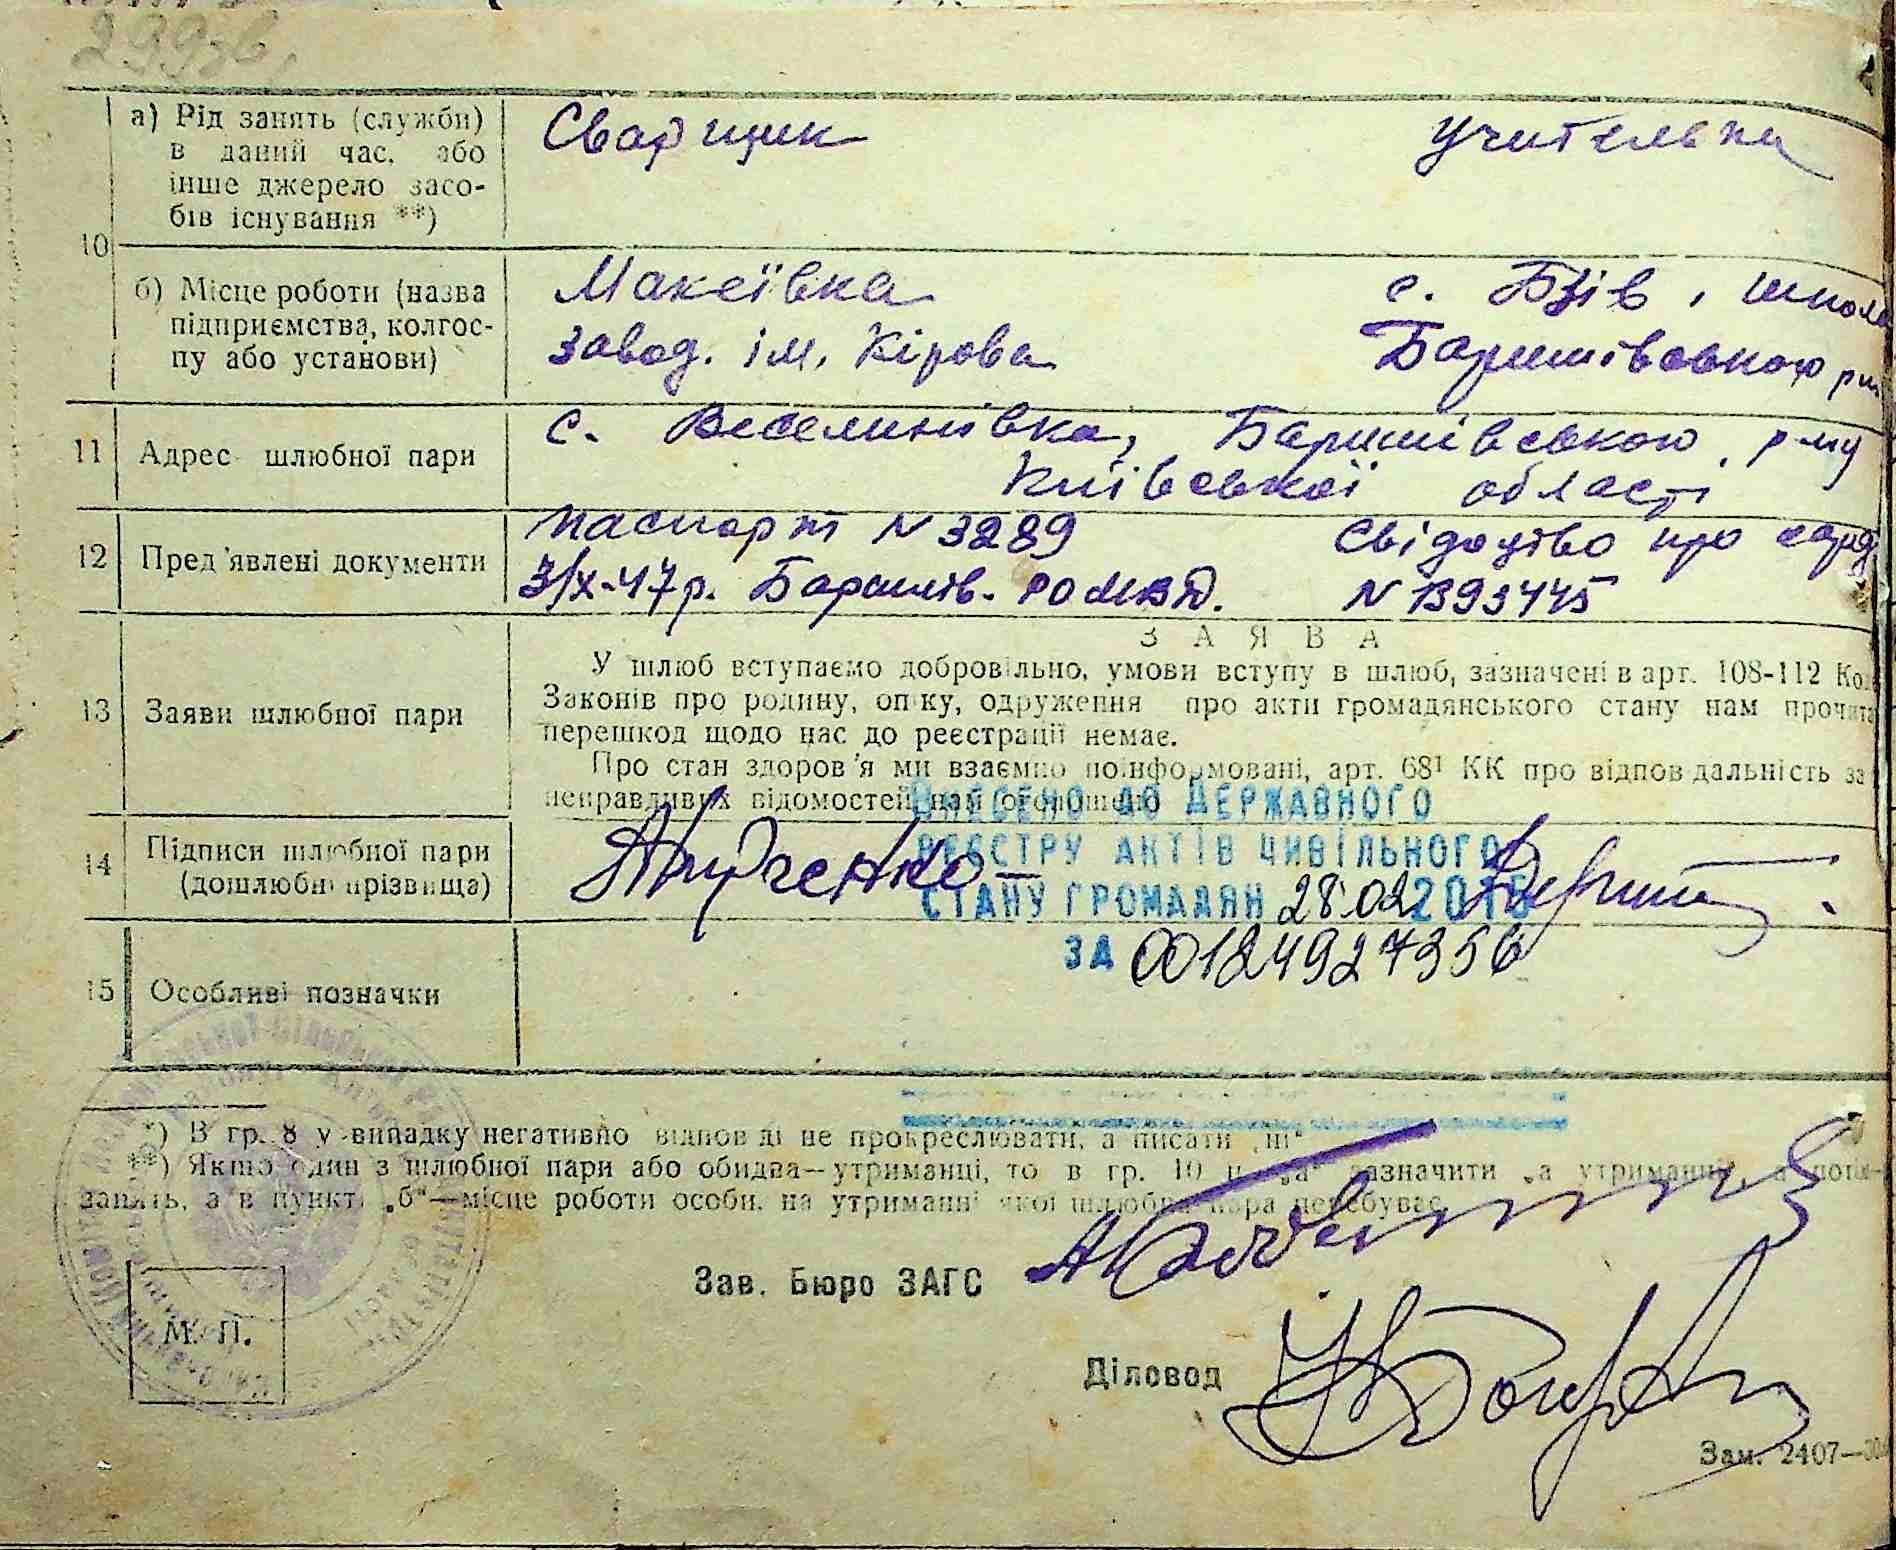 299зв.
10
а) Рід занять (служби)
в даний час, або
інше джерело засо-
бів існування **)
Сварщик
учителька
б) Місце роботи (назва
підприємства, колгос-
пу або установи)
Макеївка
завод. ім. Кірова
с. Бзів, школа
Баришівською
11
Адрес шлюбної пари
с. Веселинівка, Баришівською р-ну
Київської області
12
Пред'явлені документи
паспорт N 3289
3/X-47р. Баришів. РОМВД.
Свідоцтво про
N 1393445
13
Заяви шлюбної пари
ЗАЯВА
У шлюб вступаємо добровільно, умови вступу в шлюб, зазначені в арт. 108-112
Законів про родину, опіку, одруження про акти громадянського стану нам
перешкод щодо нас до реєстрації немає.
Про стан здоров'я ми взаємно поінформовані, арт. 68¹ КК про відповідальність за
неправдивих відомостей нам оголошено
14
Підписи шлюбної пари
(дошлюбні прізвища)
ВНЕСЕНО ДО ДЕРЖАВНОГО
РЕЄСТРУ АКТІВ ЦИВІЛЬНОГО
СТАНУ ГРОМАДЯН 28.02 2015
ЗА 00124927356
15
Особливі позначки
*) В гр. 8 у випадку негативно відповіді не прокреслювати, а писати „ні"
**) Якщо один з шлюбної пари або обидва—утриманці, то в гр. 10 п. „а" зазначити „а утриманні", а
занять, а в пункті „б"—місце роботи особи, на утриманні якої шлюбна пара перебуває
Зав. Бюро ЗАГС
М. П.
Діловод
Зам. 2407—